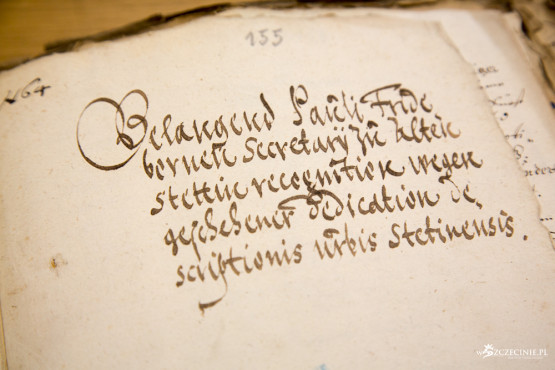 155
164
Belangend Pauli Fride
bornen Secretarÿ zu Alten
Stettin recognition wegen
geschehener dedication de,
scriptionis urbis Stetinensis.
wSZCZECINIE.PL